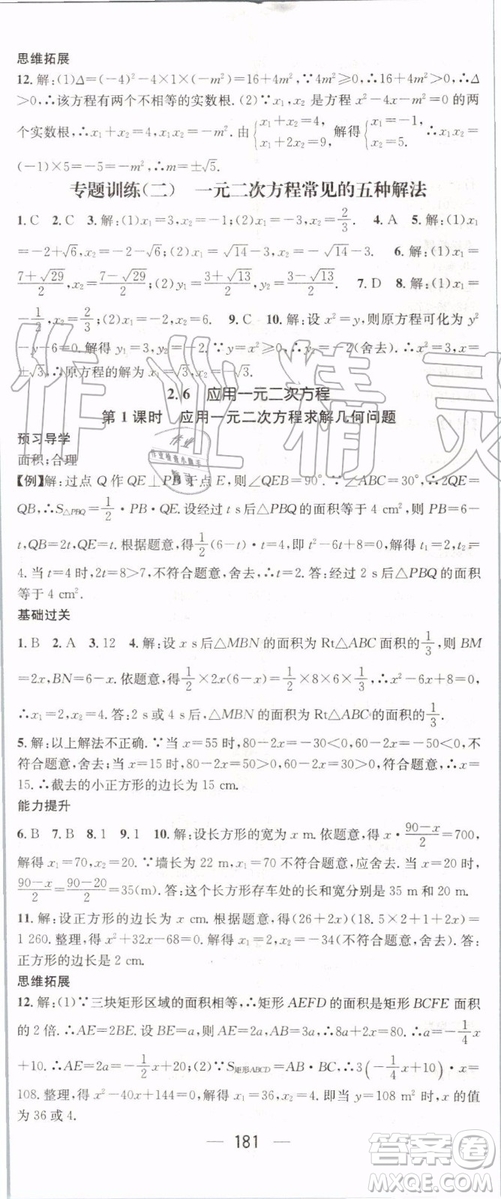 思维拓展
12. 解:(1)Δ=(-4)²-4×1×(-m²)=16+4m².∵4m²≥0,∴16+4m²>
0.∴该方程有两个不相等的实数根.(2)∵x₁,x₂ 是方程 x²-4x-m²=0 的两
个实数根,∴x₁+x₂=4.由{x₁+x₂=4, x₁+2x₂=9,解得{x₁=-1, x₂=5.∵x₁·x₂=-m²=
(-1)×5=-5,∴m=±√5.
专题训练(二) 一元二次方程常见的五种解法
1. C 2. C 3. 解:(1)x₁=3,x₂=-1.(2)x₁=3,x₂=2/3. 4. A 5. 解:(1)x₁
=-2+√6,x₂=-2-√6.(2)x₁=3,x₂=-2. 6. 解:(1)x₁=
(7+√29)/2,x₂=(7-√29)/2.(2)x₁=(3+√13)/2,x₂=(3-√13)/2. 7. D 8. 解:(1)x₁=
-1/2,x₂=4.(2)x₁=-3,x₂=2/3. 9. C 10. 解:设 x²=y,则原方程可化为 y²
-2y-3=0.解得 y₁=3,y₂=-1.当 y=-1 时,x²=-1(舍去);当 y=3 时,x²=3,x=
±√3.∴原方程的解为 x₁=√3,x₂=-√3.
2.6 应用一元二次方程
第 1 课时 应用一元二次方程求解几何问题
预习导学
面积;合理
【例】解:过点 Q 作 QE⊥PB 于点 E,则∠QEB=90°.∵∠ABC=30°,∴2QE
=QB,∴S△PBQ=1/2·PB·QE.设经过 t s 后△PBQ 的面积等于 4 cm²,则 PB=6-
t,QB=2t,QE=t.根据题意,得 1/2·(6-t)·t=4.t²-6t+8=0.解得 t₁=2,t₂=
4.当 t=4 时,2t=8>7,不符合题意,舍去.∴t=2.答:经过 2 s 后△PBQ 的面积
等于 4 cm².
基础过关
1. B 2. A 3. 12 4. 解:设 x s 后,△MBN 的面积为 Rt△ABC 面积的1/3,则 BM
=8-2x,BN=x.根据题意,得1/2·x(8-2x)=1/2×8×6×1/3.即 x²-4x+8=0,解
得 x₁=2,x₂=4.答:2 s 或 4 s 后,△MBN 的面积为 Rt△ABC 的面积的1/3.
5. 解:以上解法不正确.∵当 x=55 时,80-2x=-30<0,60-2x=-50<0,不符
合题意,应舍去;当 x=15 时,80-2x=50>0,60-2x=30>0,符合题意,∴x=
15.∴截去的小正方形的边长为 15 cm.
能力提升
6. B 7. B 8. 1 9. 1 10. 解:设长方形的宽为 x m.依题意,得 x·(90-x)/2=700,
解得 x₁=20,x₂=70.∵墙长为 22 m,∴x=70 不符合题意,应舍去.当 x=20 时,
(90-x)/2=(90-20)/2=35.符合题意.答:这个长方形存车处的长和宽分别是 35 m 和 20 m.
11. 解:设正方形的边长为 x cm.根据题意,得(26+2x)(16+2x)-26×16=
1 260.整理,得 x²+21x-196=0.解得 x₁=7,x₂=-28(不符合题意,舍去).答:
正方形的边长为 7 cm.
思维拓展
12. 解:(1)∵三块矩形区域的面积相等,∴矩形 AEFD 的面积是矩形 BCFE 面积
的 2 倍.∴AE=2BE.设 BE=a,则 AE=2a.∴8a+2x=80.∴a=-1/4
x+10.∴AE=-1/2x+20.(2)∵S矩形ABCD=AB·BC,∴3(-1/4x+10)·x=
108.整理,得 x²-40x+144=0.解得 x₁=36,x₂=4.两根均符合题意,∴x 的
值为 36 或 4.
181